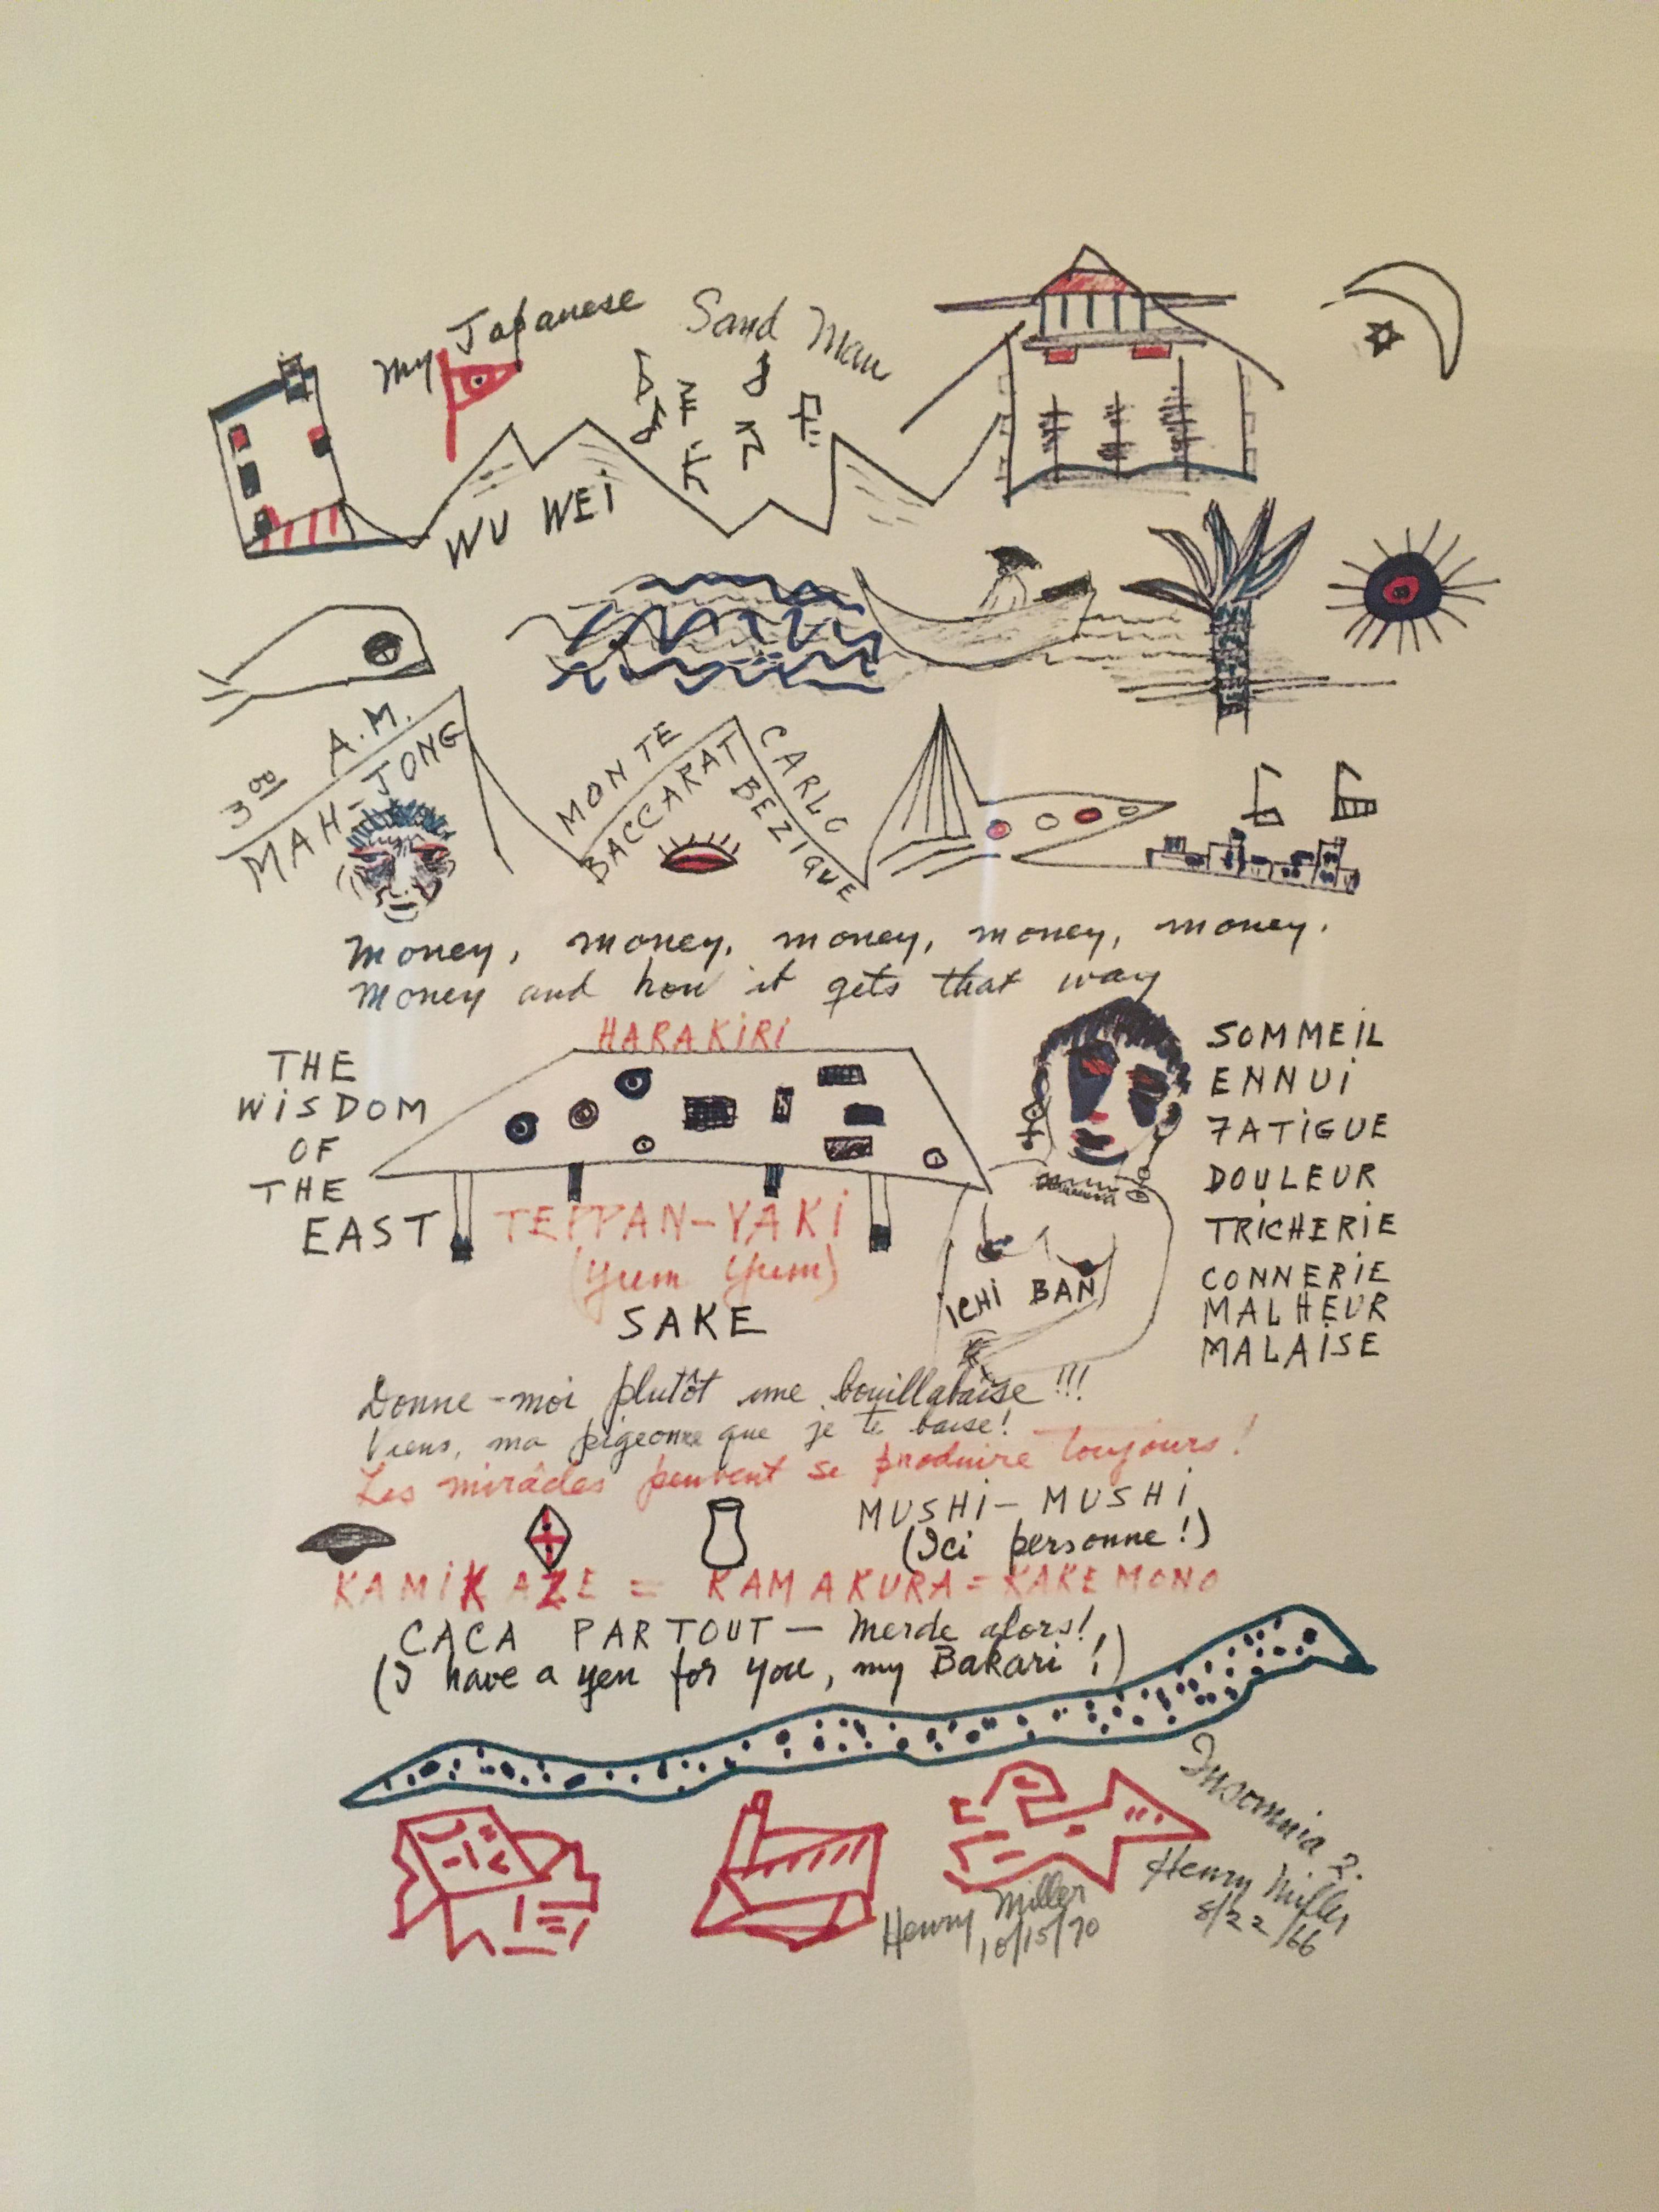 My Japanese Sand Man
WU WEI
3 00 A.M.
MAH-JONG
MONTE CARLO
BACCARAT BEZIQUE
Money, money, money, money, money.
Money and how it gets that way
HARAKIRI
THE
WISDOM
OF
THE
EAST
TEPPAN-YAKI
(Yum Yum)
SAKE
ICHI BAN
SOMMEIL
ENNUI
FATIGUE
DOULEUR
TRICHERIE
CONNERIE
MALHEUR
MALAISE
Donne-moi plutôt une bouillabaise!!!
Viens, ma pigeonne que je te baise!
Les mirâcles peuvent se produire toujours!
MUSHI-MUSHI
(Ici personne!)
KAMIKAZE = KAMAKURA = KAKEMONO
CACA PARTOUT — Merde alors!
(I have a yen for you, my Bakari!)
Insomnia 2.
Henry Miller
8/22/66
Henry Miller
10/15/70